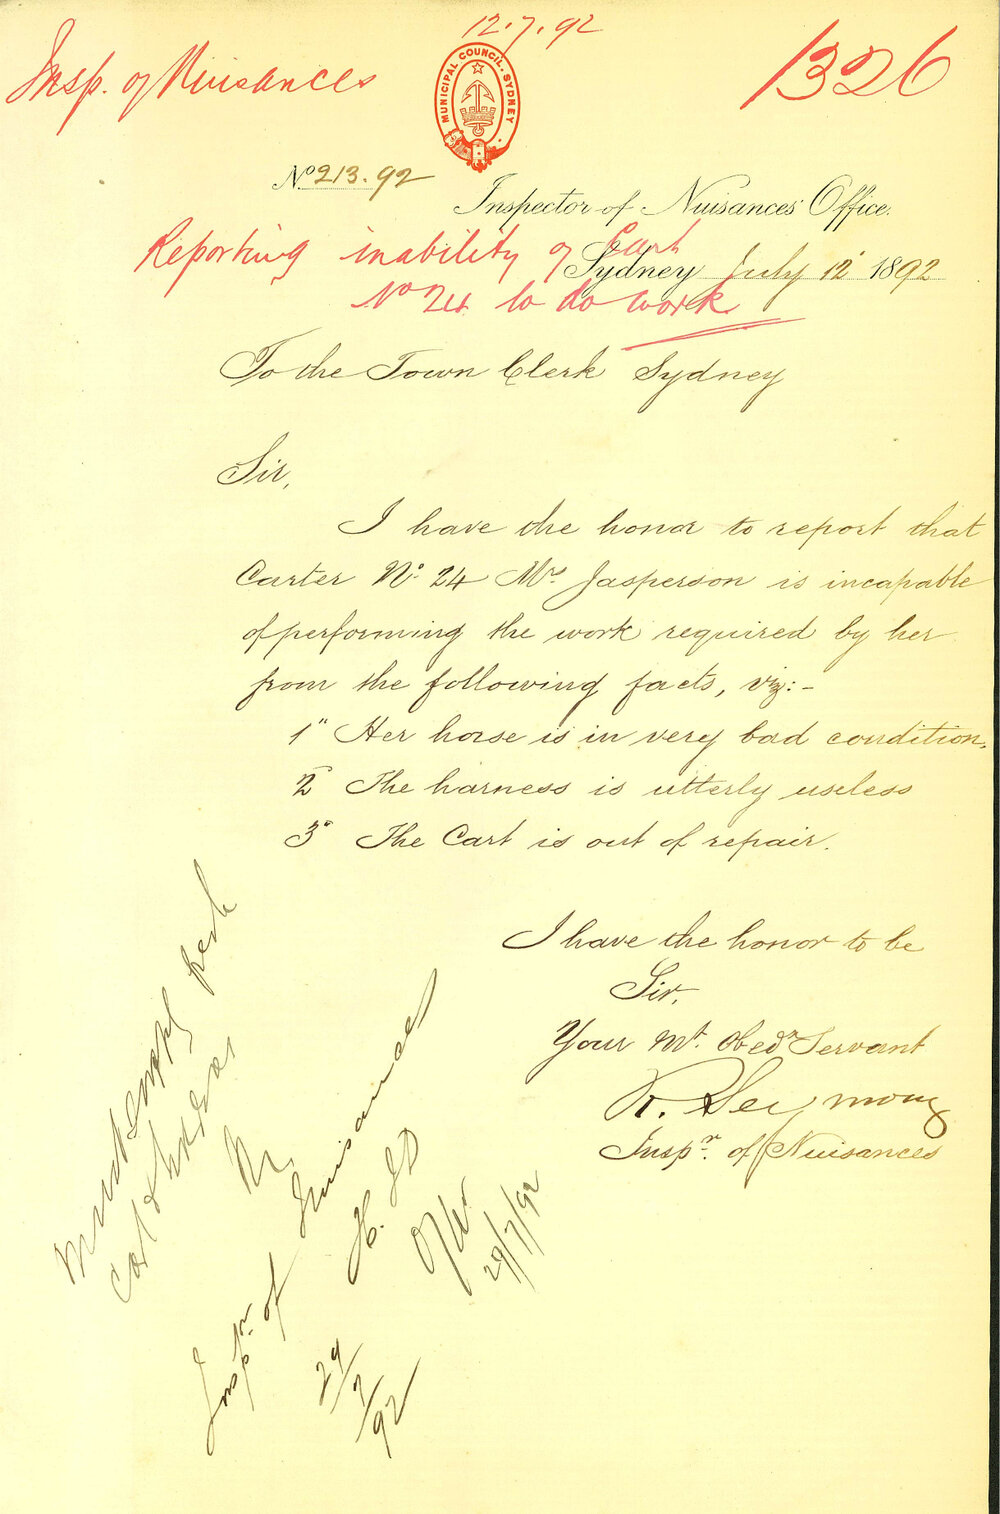 12.7.92
Insp. of Nuisances
1326
MUNICIPAL COUNCIL. SYDNEY
No 213.92
Inspector of Nuisances' Office.
Reporting inability of Cart
Sydney July 12 1892
No 24 to do work
To the Town Clerk Sydney
Sir,
I have the honor to report that
Carter No. 24 Mrs Jasperson is incapable
of performing the work required by her
from the following facts, viz:-
1" Her horse is in very bad condition.
2 " The harness is utterly useless
3" The Cart is out of repair.
I have the honor to be
Sir,
Your Mt. Obedn Servant
R. Seymour
Inspr. of Nuisances
Must supply fresh
Cart &
Inspr of Nuisances
29/7/92
29/7/92